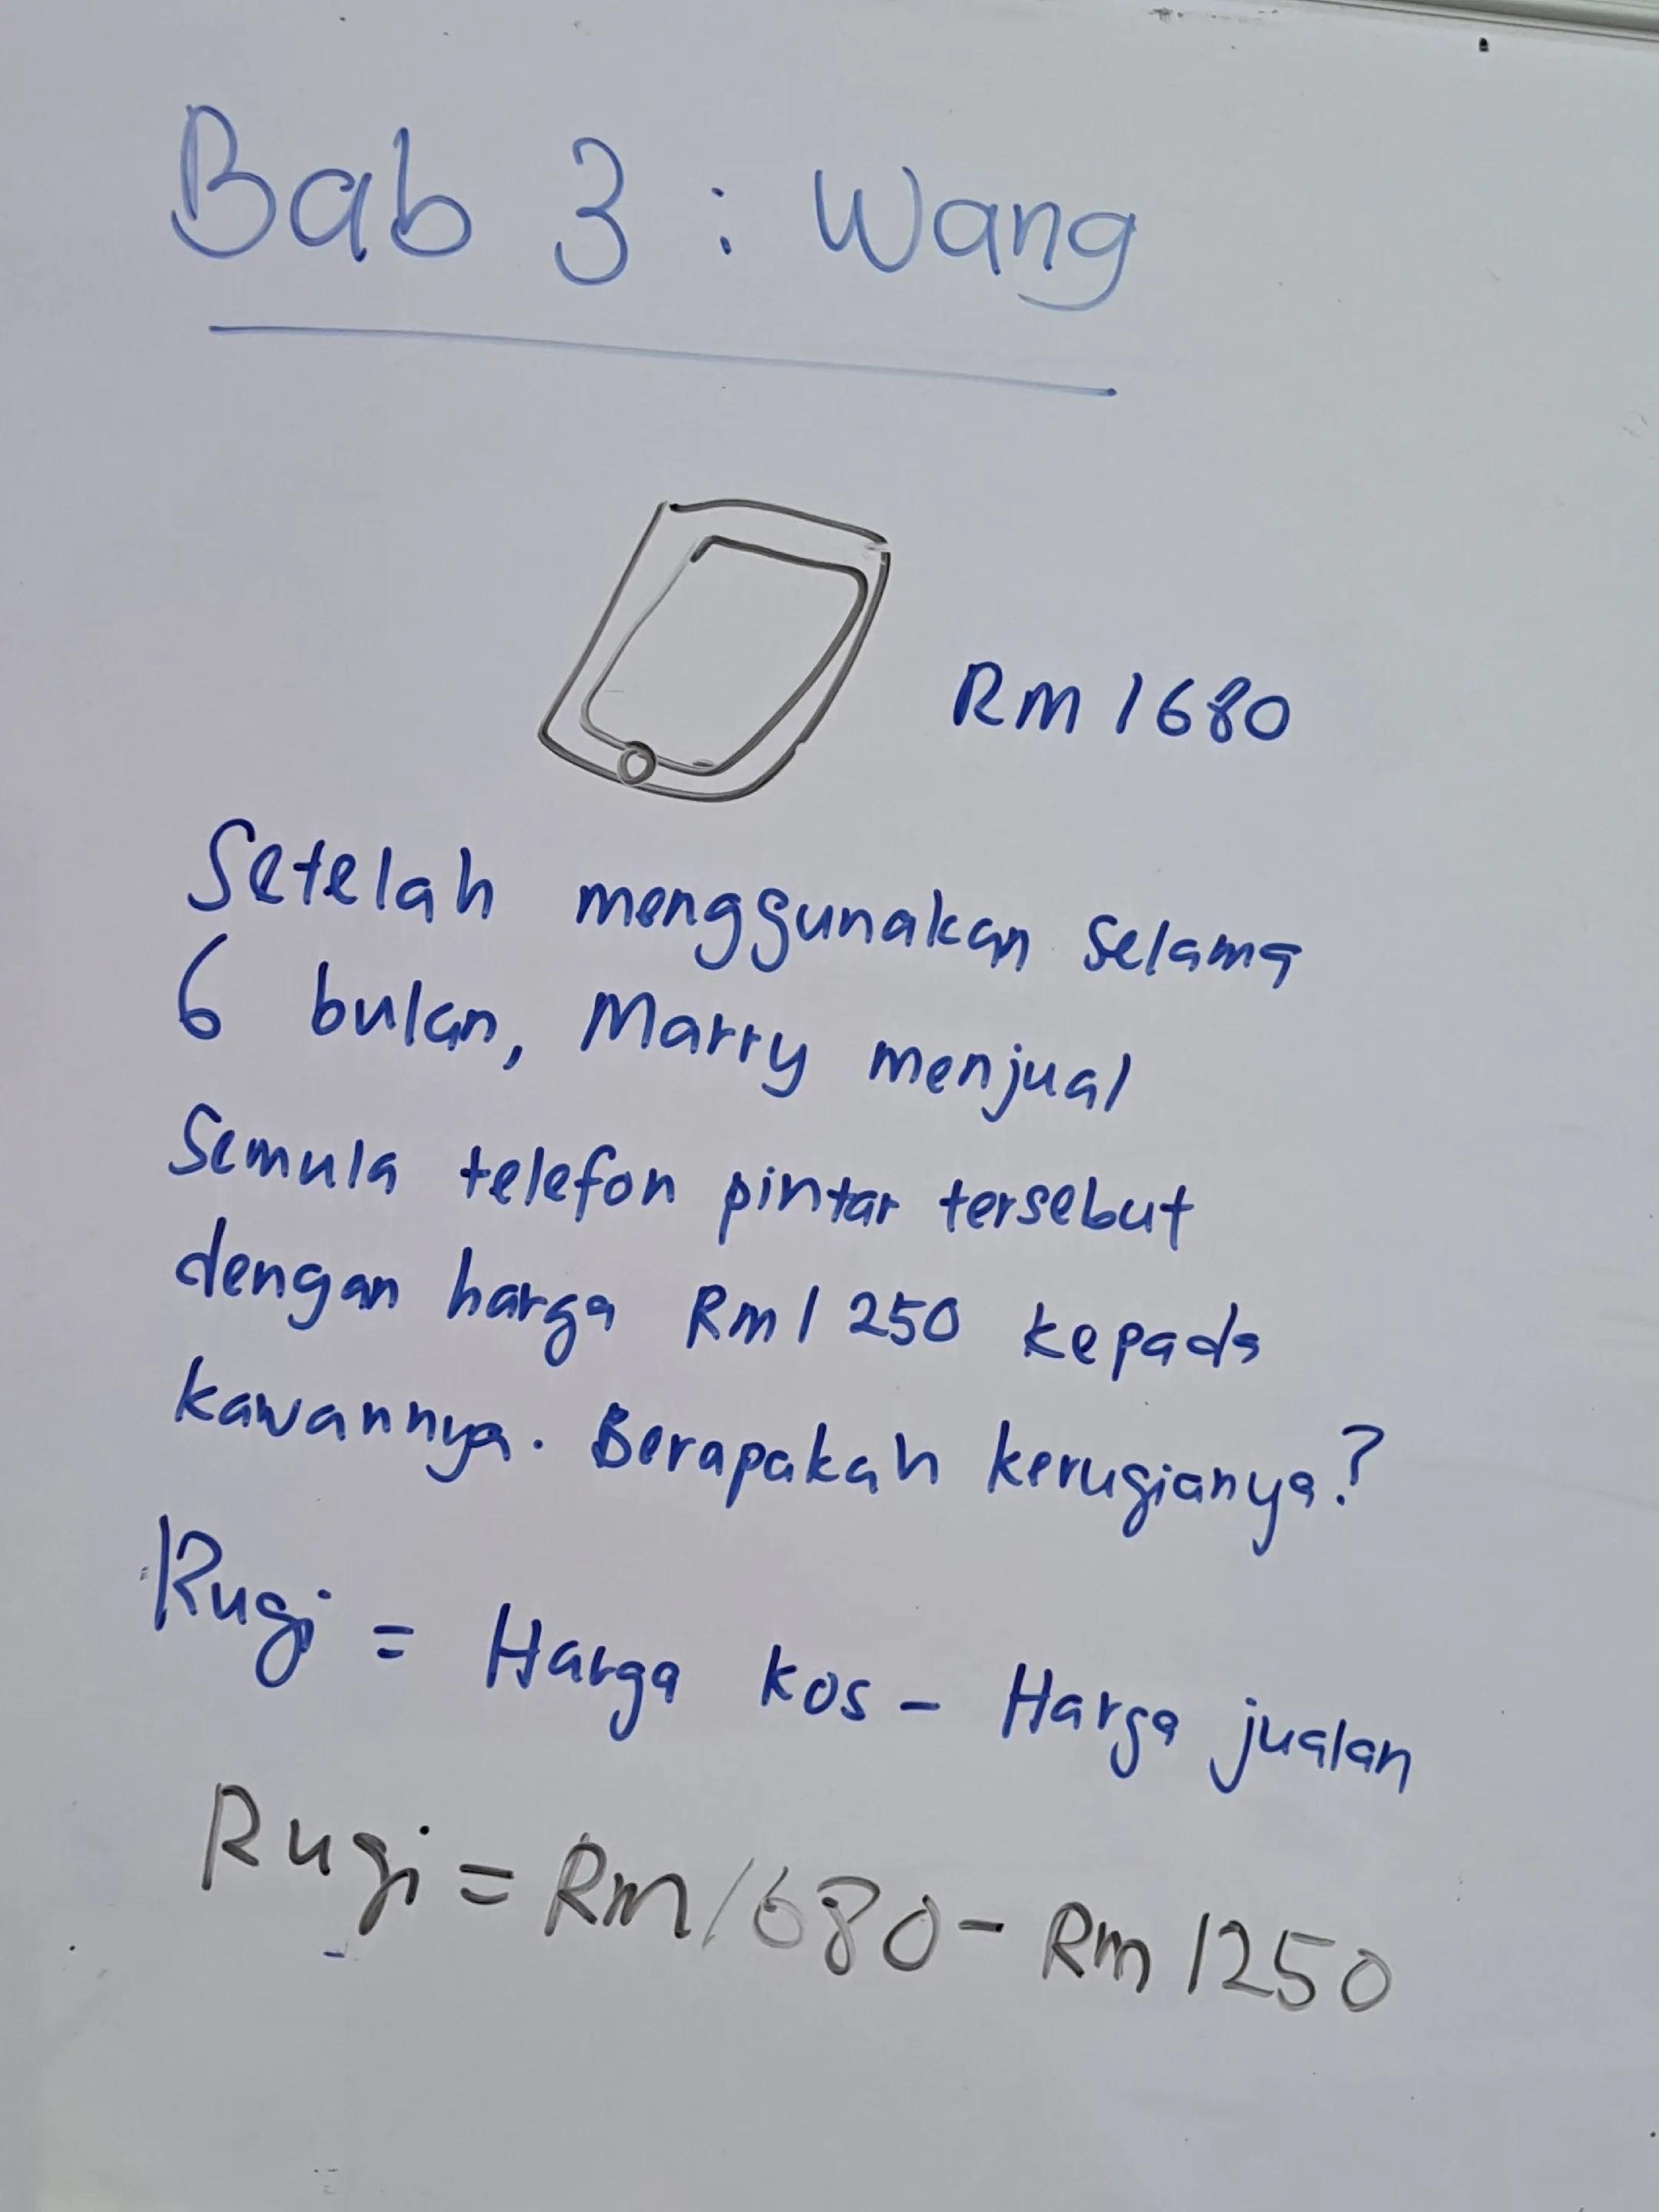 Bab 3 : Wang
RM 1680
Setelah menggunakan selama
6 bulan, Marry menjual
Semula telefon pintar tersebut
dengan harga RM1250 kepada
kawannya. Berapakah kerugianya?
Rugi = Harga kos - Harga jualan
Rugi = RM1680 - RM 1250